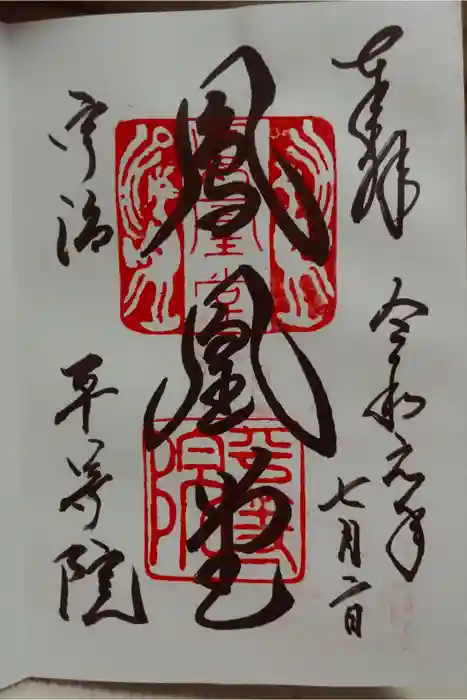 奉拝
令和元年
七月二日
鳳凰堂
鳳凰堂
宇治
平等院